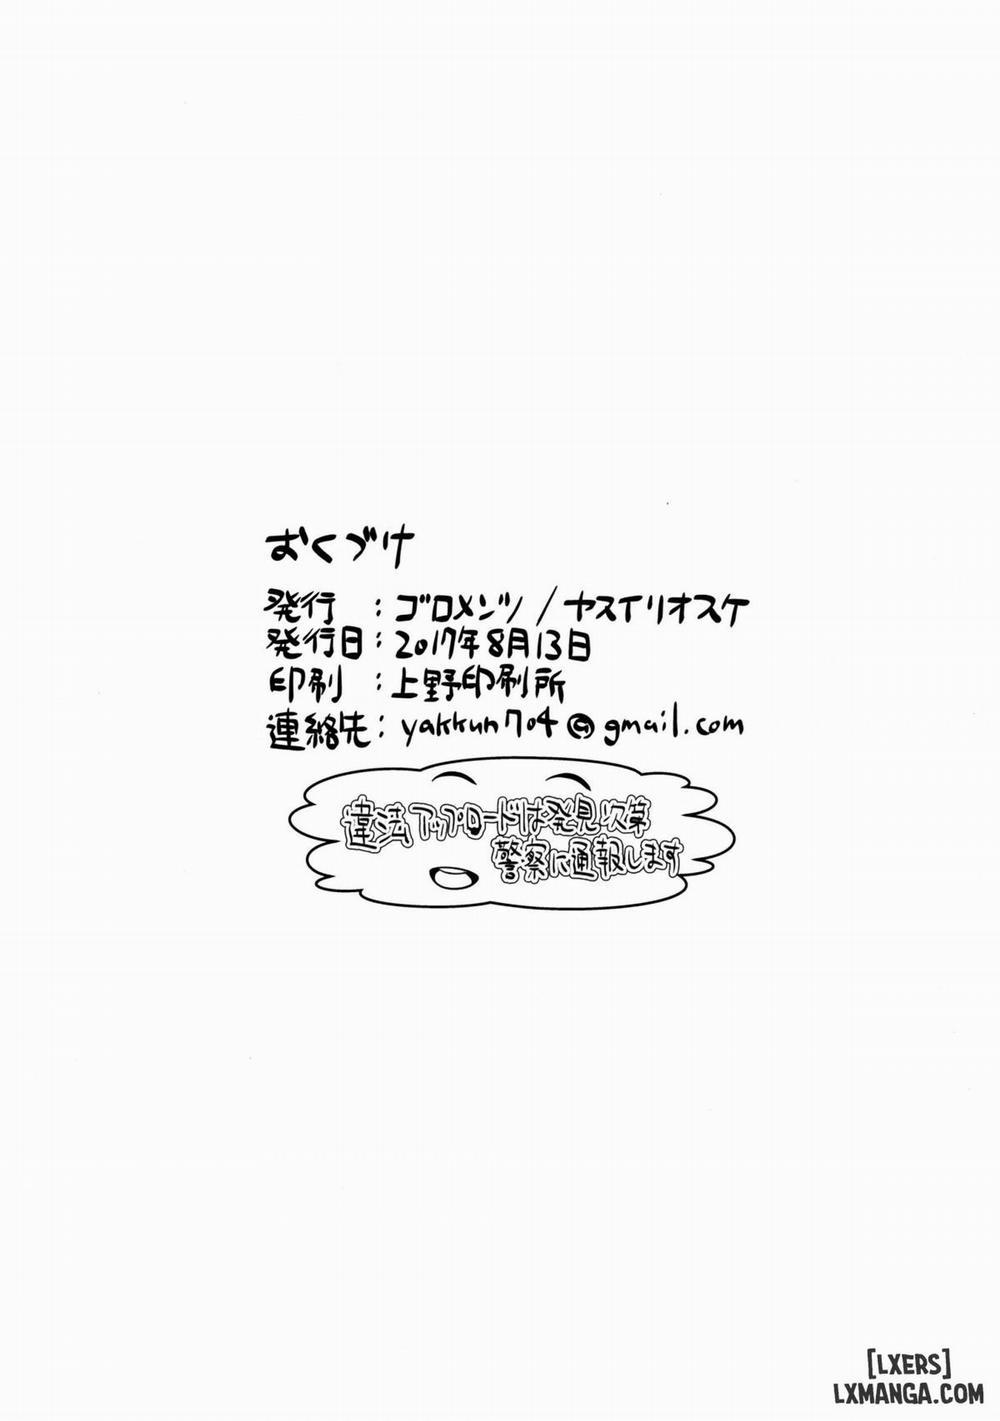 おくづけ
発行 : ゴロメンツ / ヤスイリオスケ
発行日 : 2017年8月13日
印刷 : 上野印刷所
連絡先 : yakkun704@gmail.com
違法アップロードは発見次第
警察に通報します
[LXERS]
LXMANGA.COM